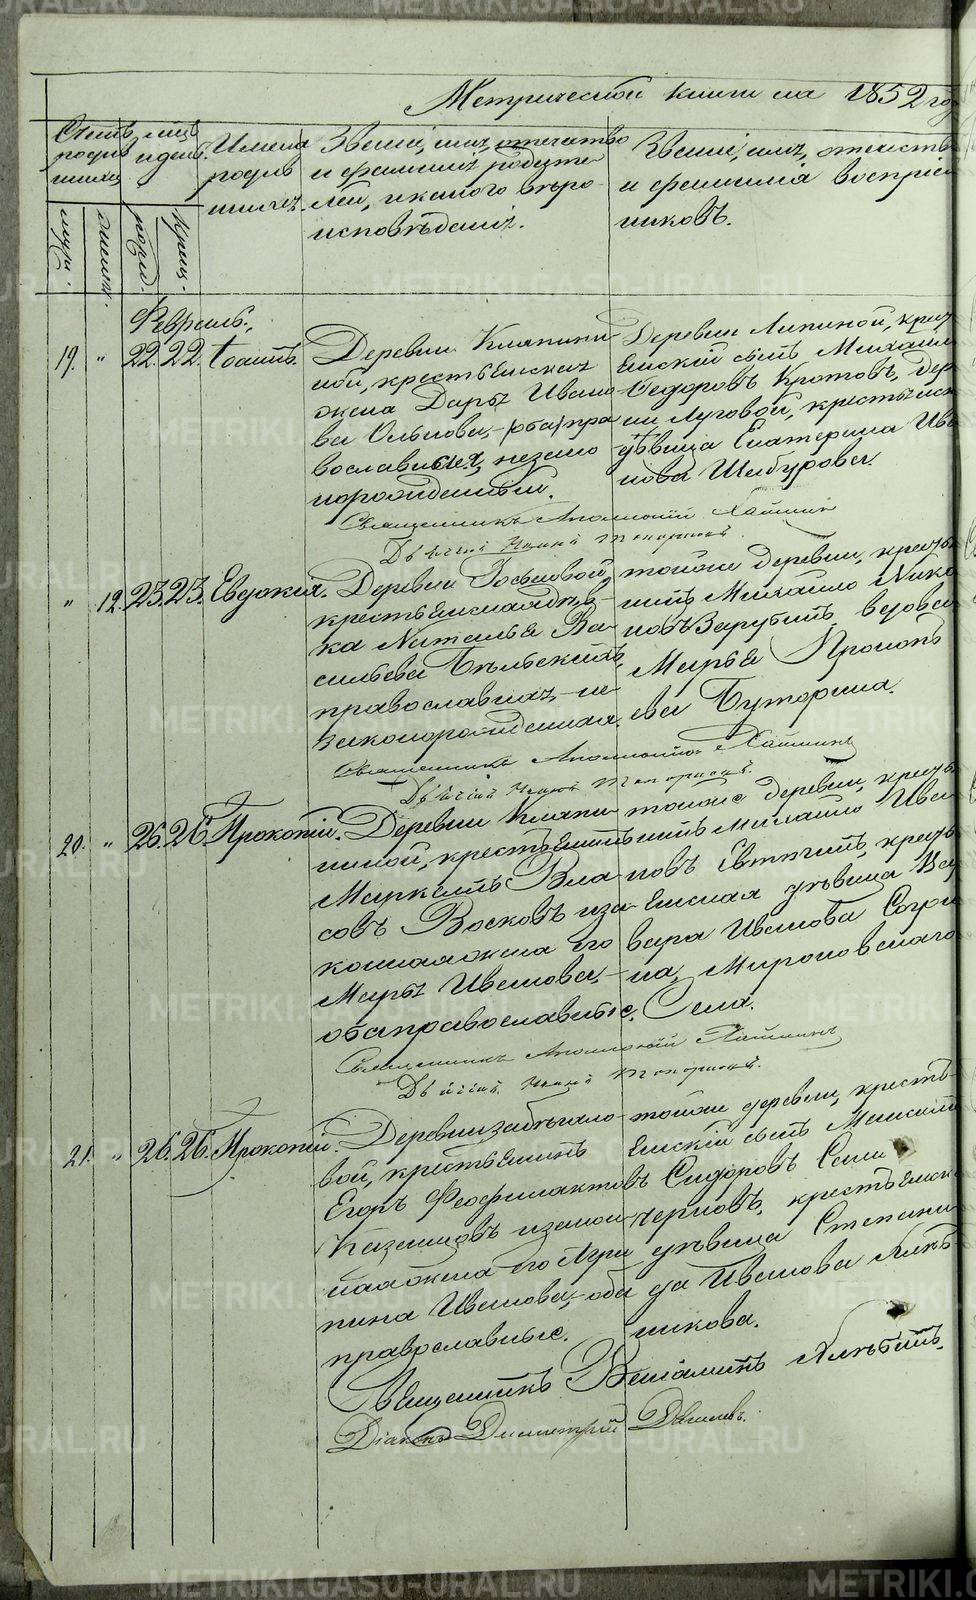 Метрической книги на 1852 го
Счетъ родив шихся
муж. женск.
мѣсяцъ и день
рожд. крещ.
Имена родив шихся.
Званіе, имя, отечество
и фамилія родите
лей, и какого вѣро
исповѣданія.
Званіе, имя, отечеств
и фамилія воспріем
никовъ.
Февраль.
19. " 22. 22. Іоаннъ.
Деревни Кляпини
ной, крестьянская
жена Дарья Ивано
ва Олькова,
православная, незако
норожденный.
Деревни Липиной, крес
янскій сынъ Михаил
Ѳедоровъ Кротовъ, дер
ни Луговой, крестьянск
дѣвица Екатерина Ива
нова Шабурова.
Священникъ Аполлоній Хатинъ
Дьячекъ Топорковъ
" 12. 23. 23. Евдокія.
Деревни
крестьянская дѣв
ка Наталья Ва
сильева Бѣльскихъ,
православная, не
законорожденная.
тойже деревни, крест
нинъ Михайло Нико
новъ Зарубинъ, вдова
Марья Прокопь
ева Буторина.
Священникъ Аполлоній Хатинъ
Дьячекъ Топорковъ.
20. " 26. 26. Прокопій.
Деревни Кляпи
ниной, крестьянинъ
Маркелъ Вла
совъ Восковъ иза
конная жена его
Марья Иванова,
оба православные.
тойже деревни, крест
нинъ Михайло Ива
новъ Свѣтчинъ, крест
янская дѣвица Вар
вара Иванова Согри
на, Мироновскаго
Села.
Священникъ Аполлоній Хатинъ
Дьячекъ Топорковъ.
21. " 26. 26. Прокопій.
Деревни забѣгало
вой, крестьянинъ
Егоръ Феофилактовъ
Казанцовъ изакон
ная жена его Агри
пина Иванова, оба
православные.
тойже деревни, кресть
янскій сынъ Максим
Сидоровъ Сама
черновъ, крестьянск
дѣвица Степани
да Иванова
никова.
Священникъ Веніаминъ
Діаконъ Димитрій